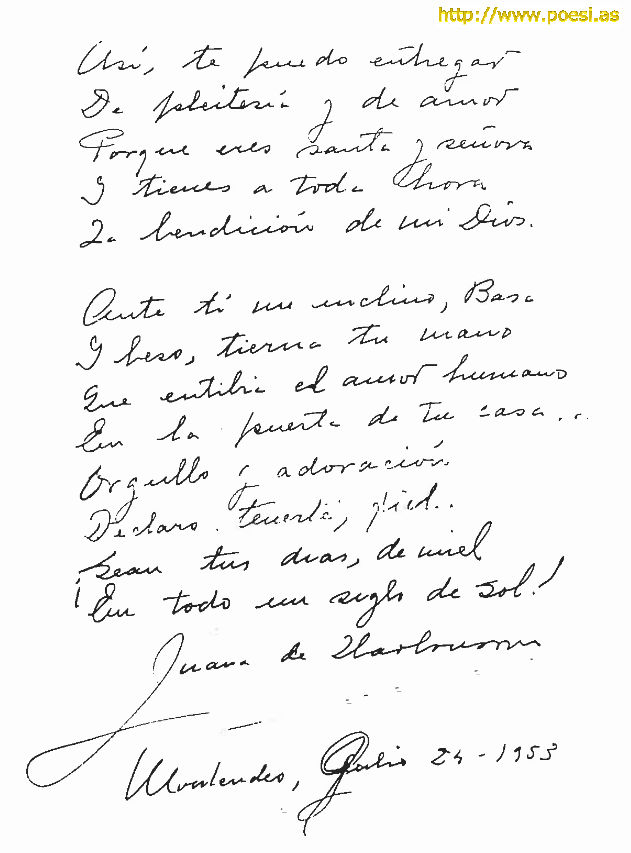 http://www.poesi.as
Así, te puedo entregar
De pleitesía y de amor
Porque eres santa y señora
Y tienes a toda hora
La bendición de mi Dios.
Ante ti me inclino, Basa
Y beso, tierna tu mano
Que entibia el amor humano
En la puerta de tu casa...
Orgullo y adoración
Declaro tenerte, fiel..
Sean tus días, de miel
¡En todo un siglo de sol!
Juana de Ibarbourou
Montevideo, Julio 24-1953